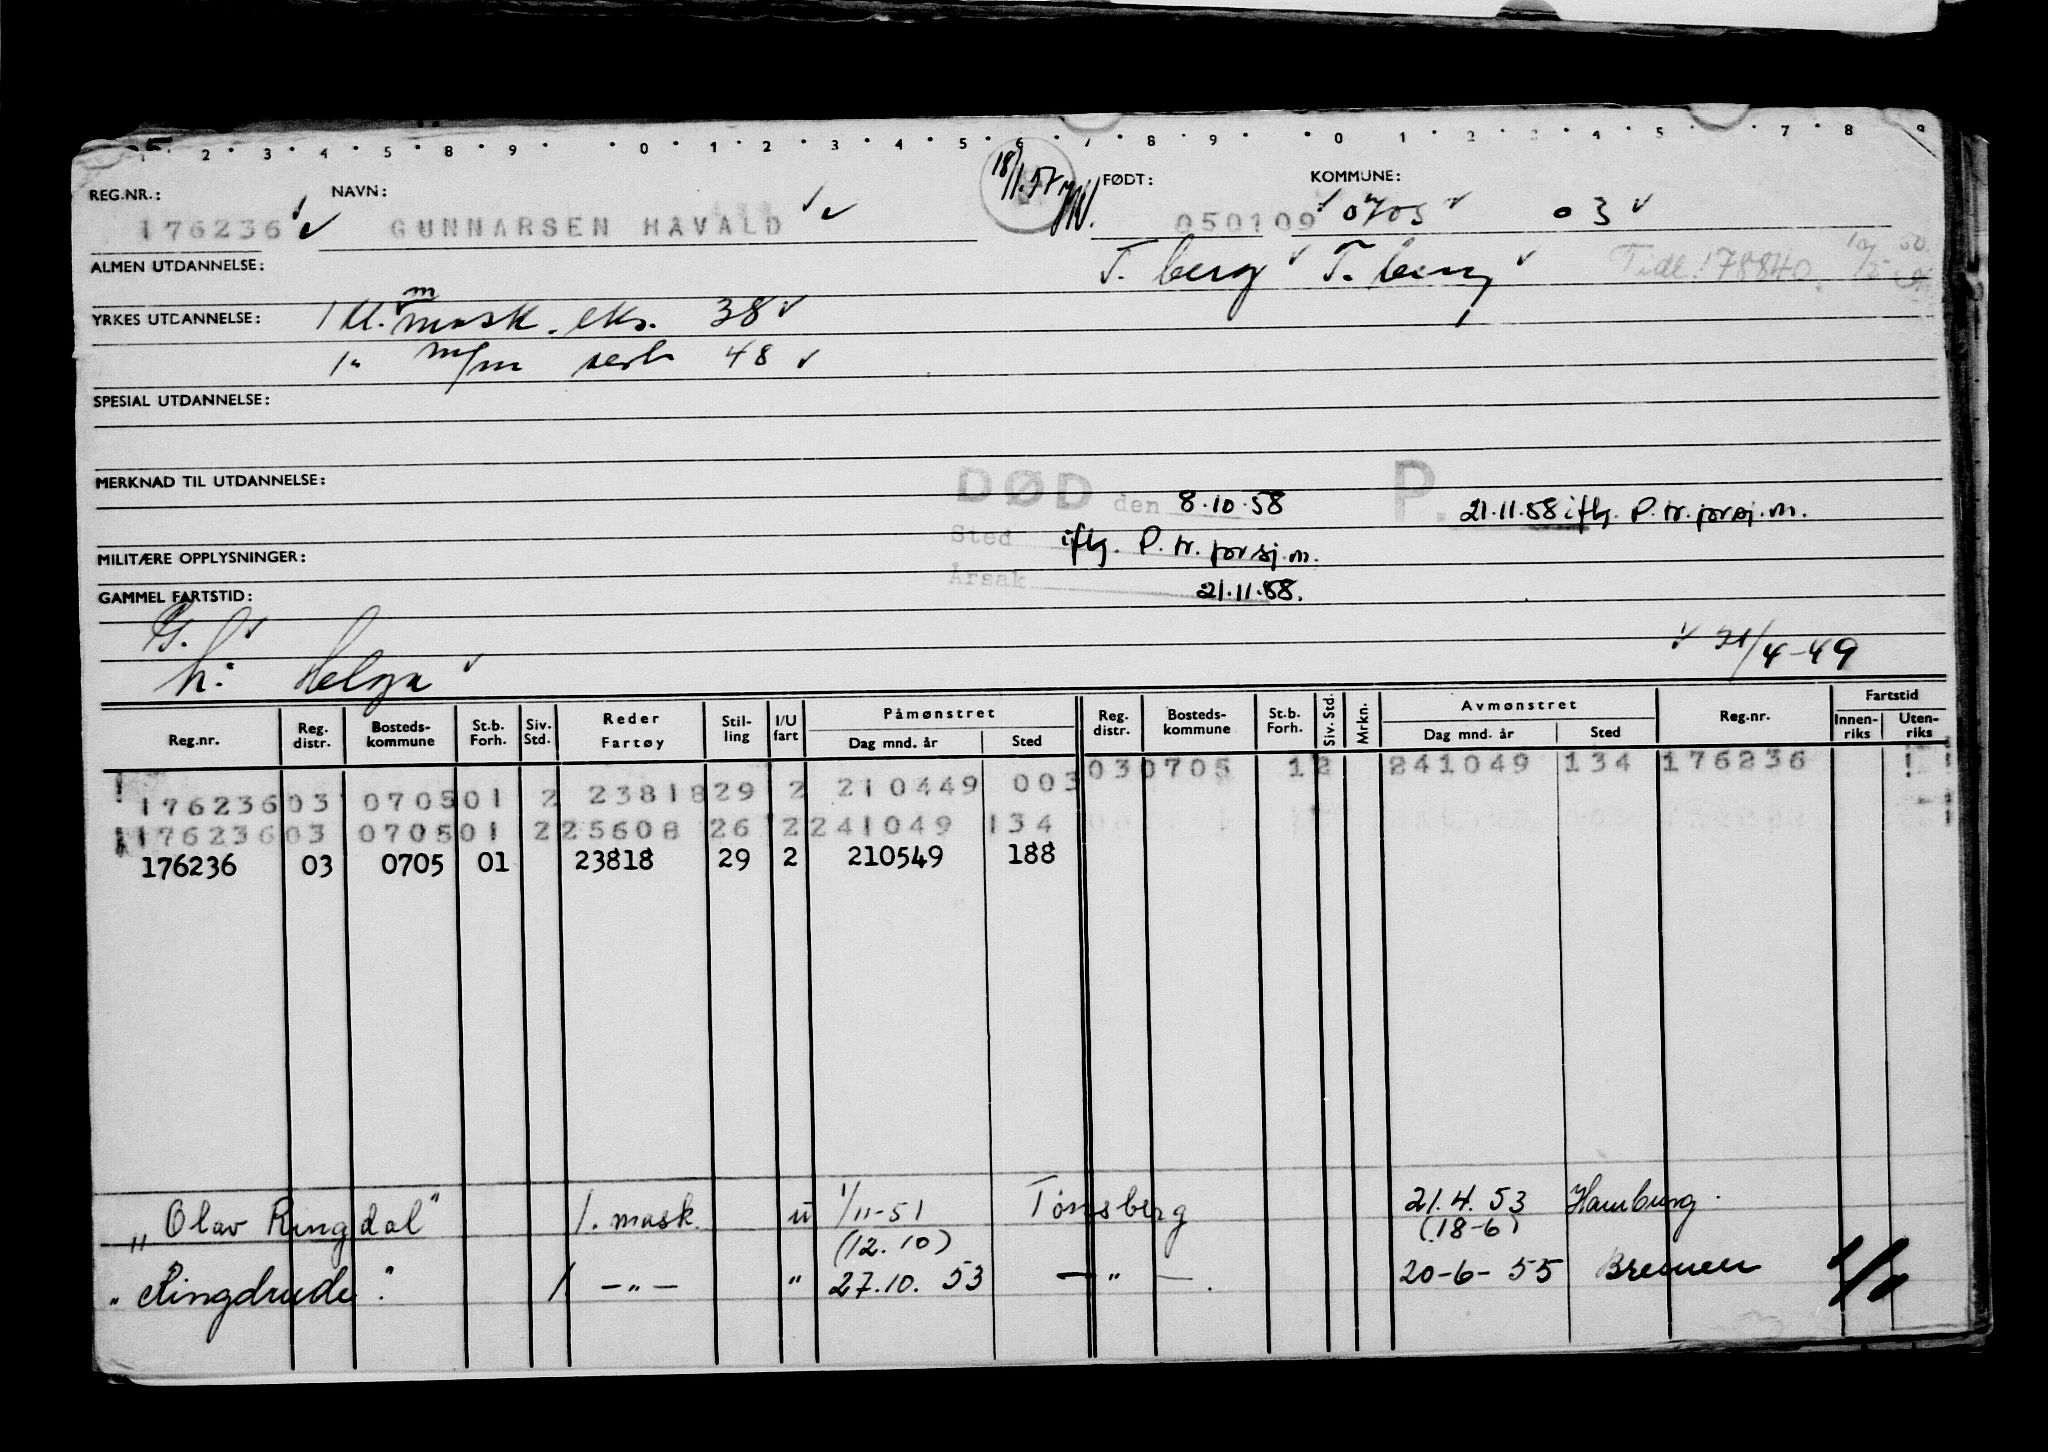 1 2 3 4 5 8 9 0 1 2 3 4 5 6 7 8 9 0 1 2 3 4 5 7 8 9
REG.NR.: NAVN: FØDT: KOMMUNE:
176236 GUNNARSEN HAVALD 18/1.57 050109 0705 03
ALMEN UTDANNELSE: T. berg T. berg Tidl. 178840
YRKES UTDANNELSE: 1 kl. mask. eks. 38
1" m/m sert 48
SPESIAL UTDANNELSE:
MERKNAD TIL UTDANNELSE:
DØD den 8.10.58 P. 21.11.58 iflg. P. tr. for sj. m.
Sted iflg. P. tr. for sj. m.
MILITÆRE OPPLYSNINGER:
Årsak 21.11.58.
GAMMEL FARTSTID:
G.
h: Helga 21/4-49
Reg.nr. Reg. distr. Bosteds-kommune St.b. Forh. Siv. Std. Reder Fartøy Stil-ling I/U fart Påmønstret Dag mnd. år Sted Reg. distr. Bosteds-kommune St.b. Forh. Siv. Std. Mrkn. Avmønstret Dag mnd. år Sted Reg.nr. Fartstid Innen-riks Uten-riks
176236 03 0705 01 2 23818 29 2 210449 003 03 0705 1 2 241049 134 176236
176236 03 0705 01 2 25608 26 2 241049 134
176236 03 0705 01 23818 29 2 210549 188
"Olav Ringdal" 1. mask. u 1/11-51 Tønsberg 21.4.53 Hamburg.
(12.10) (18-6)
"Ringdrude". 1 -"- " 27.10.53 -"-. 20-6-55 Bremen